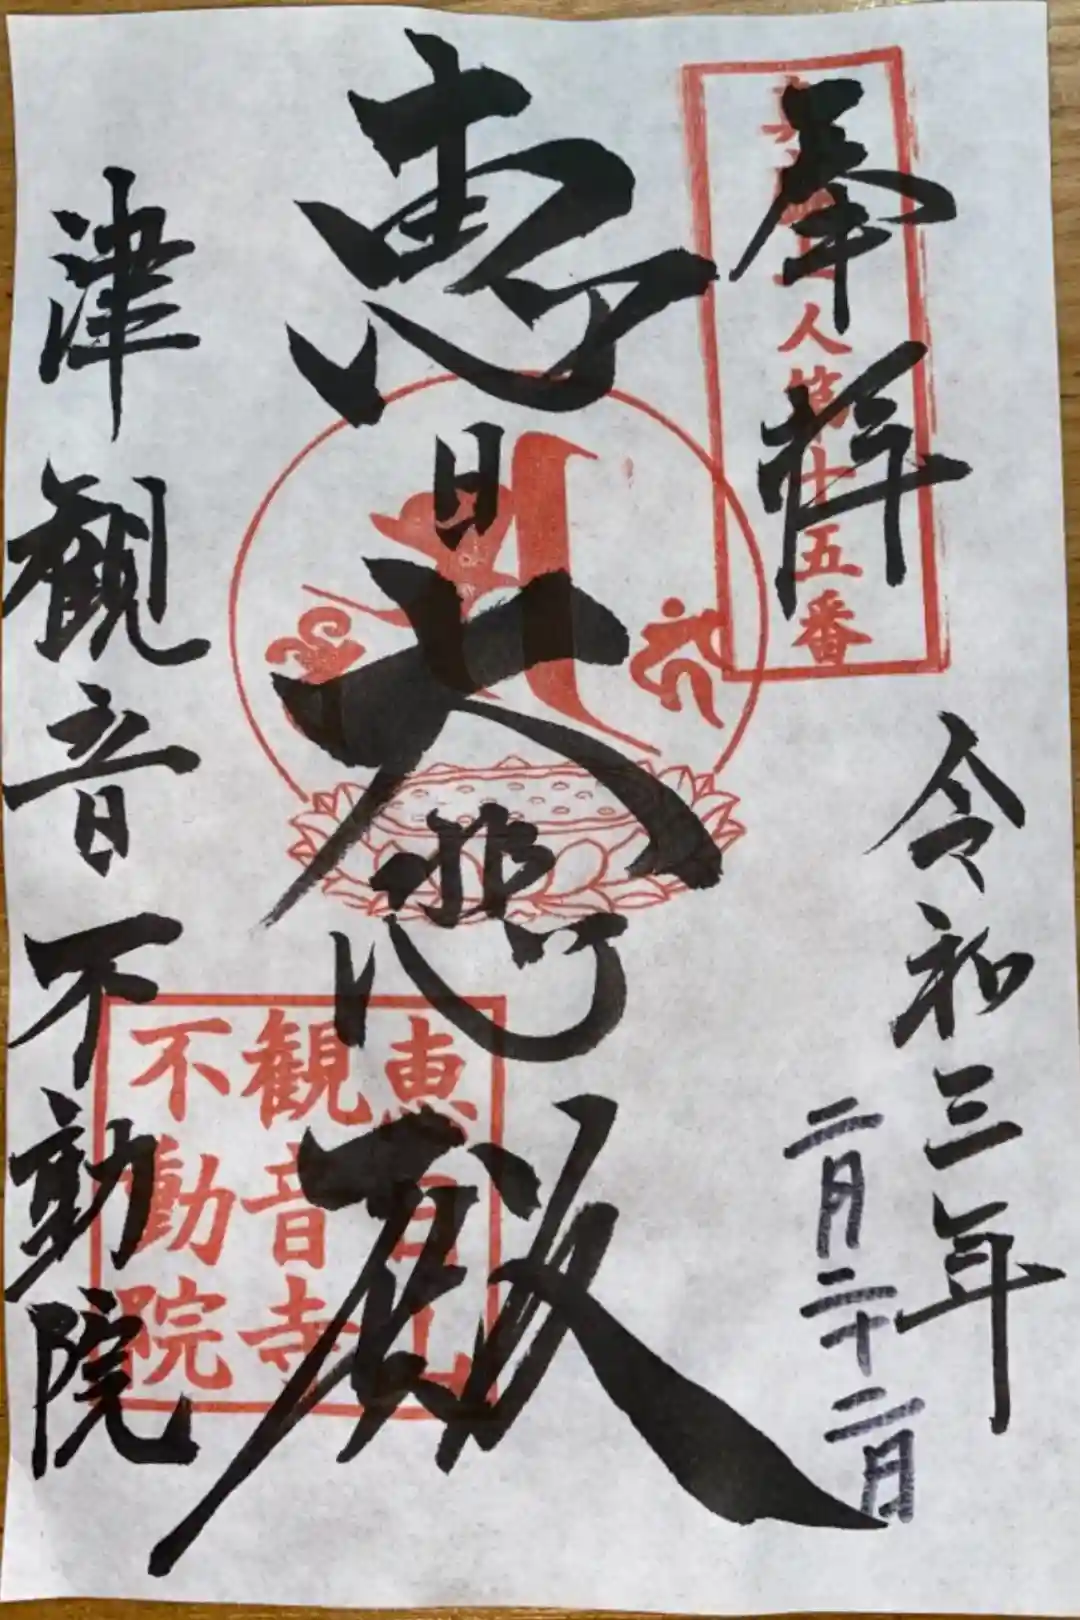 奉拝
人第十五番
令和三年
二月二十二日
恵日大悲殿
恵日山
観音寺
不動院
津観音不動院